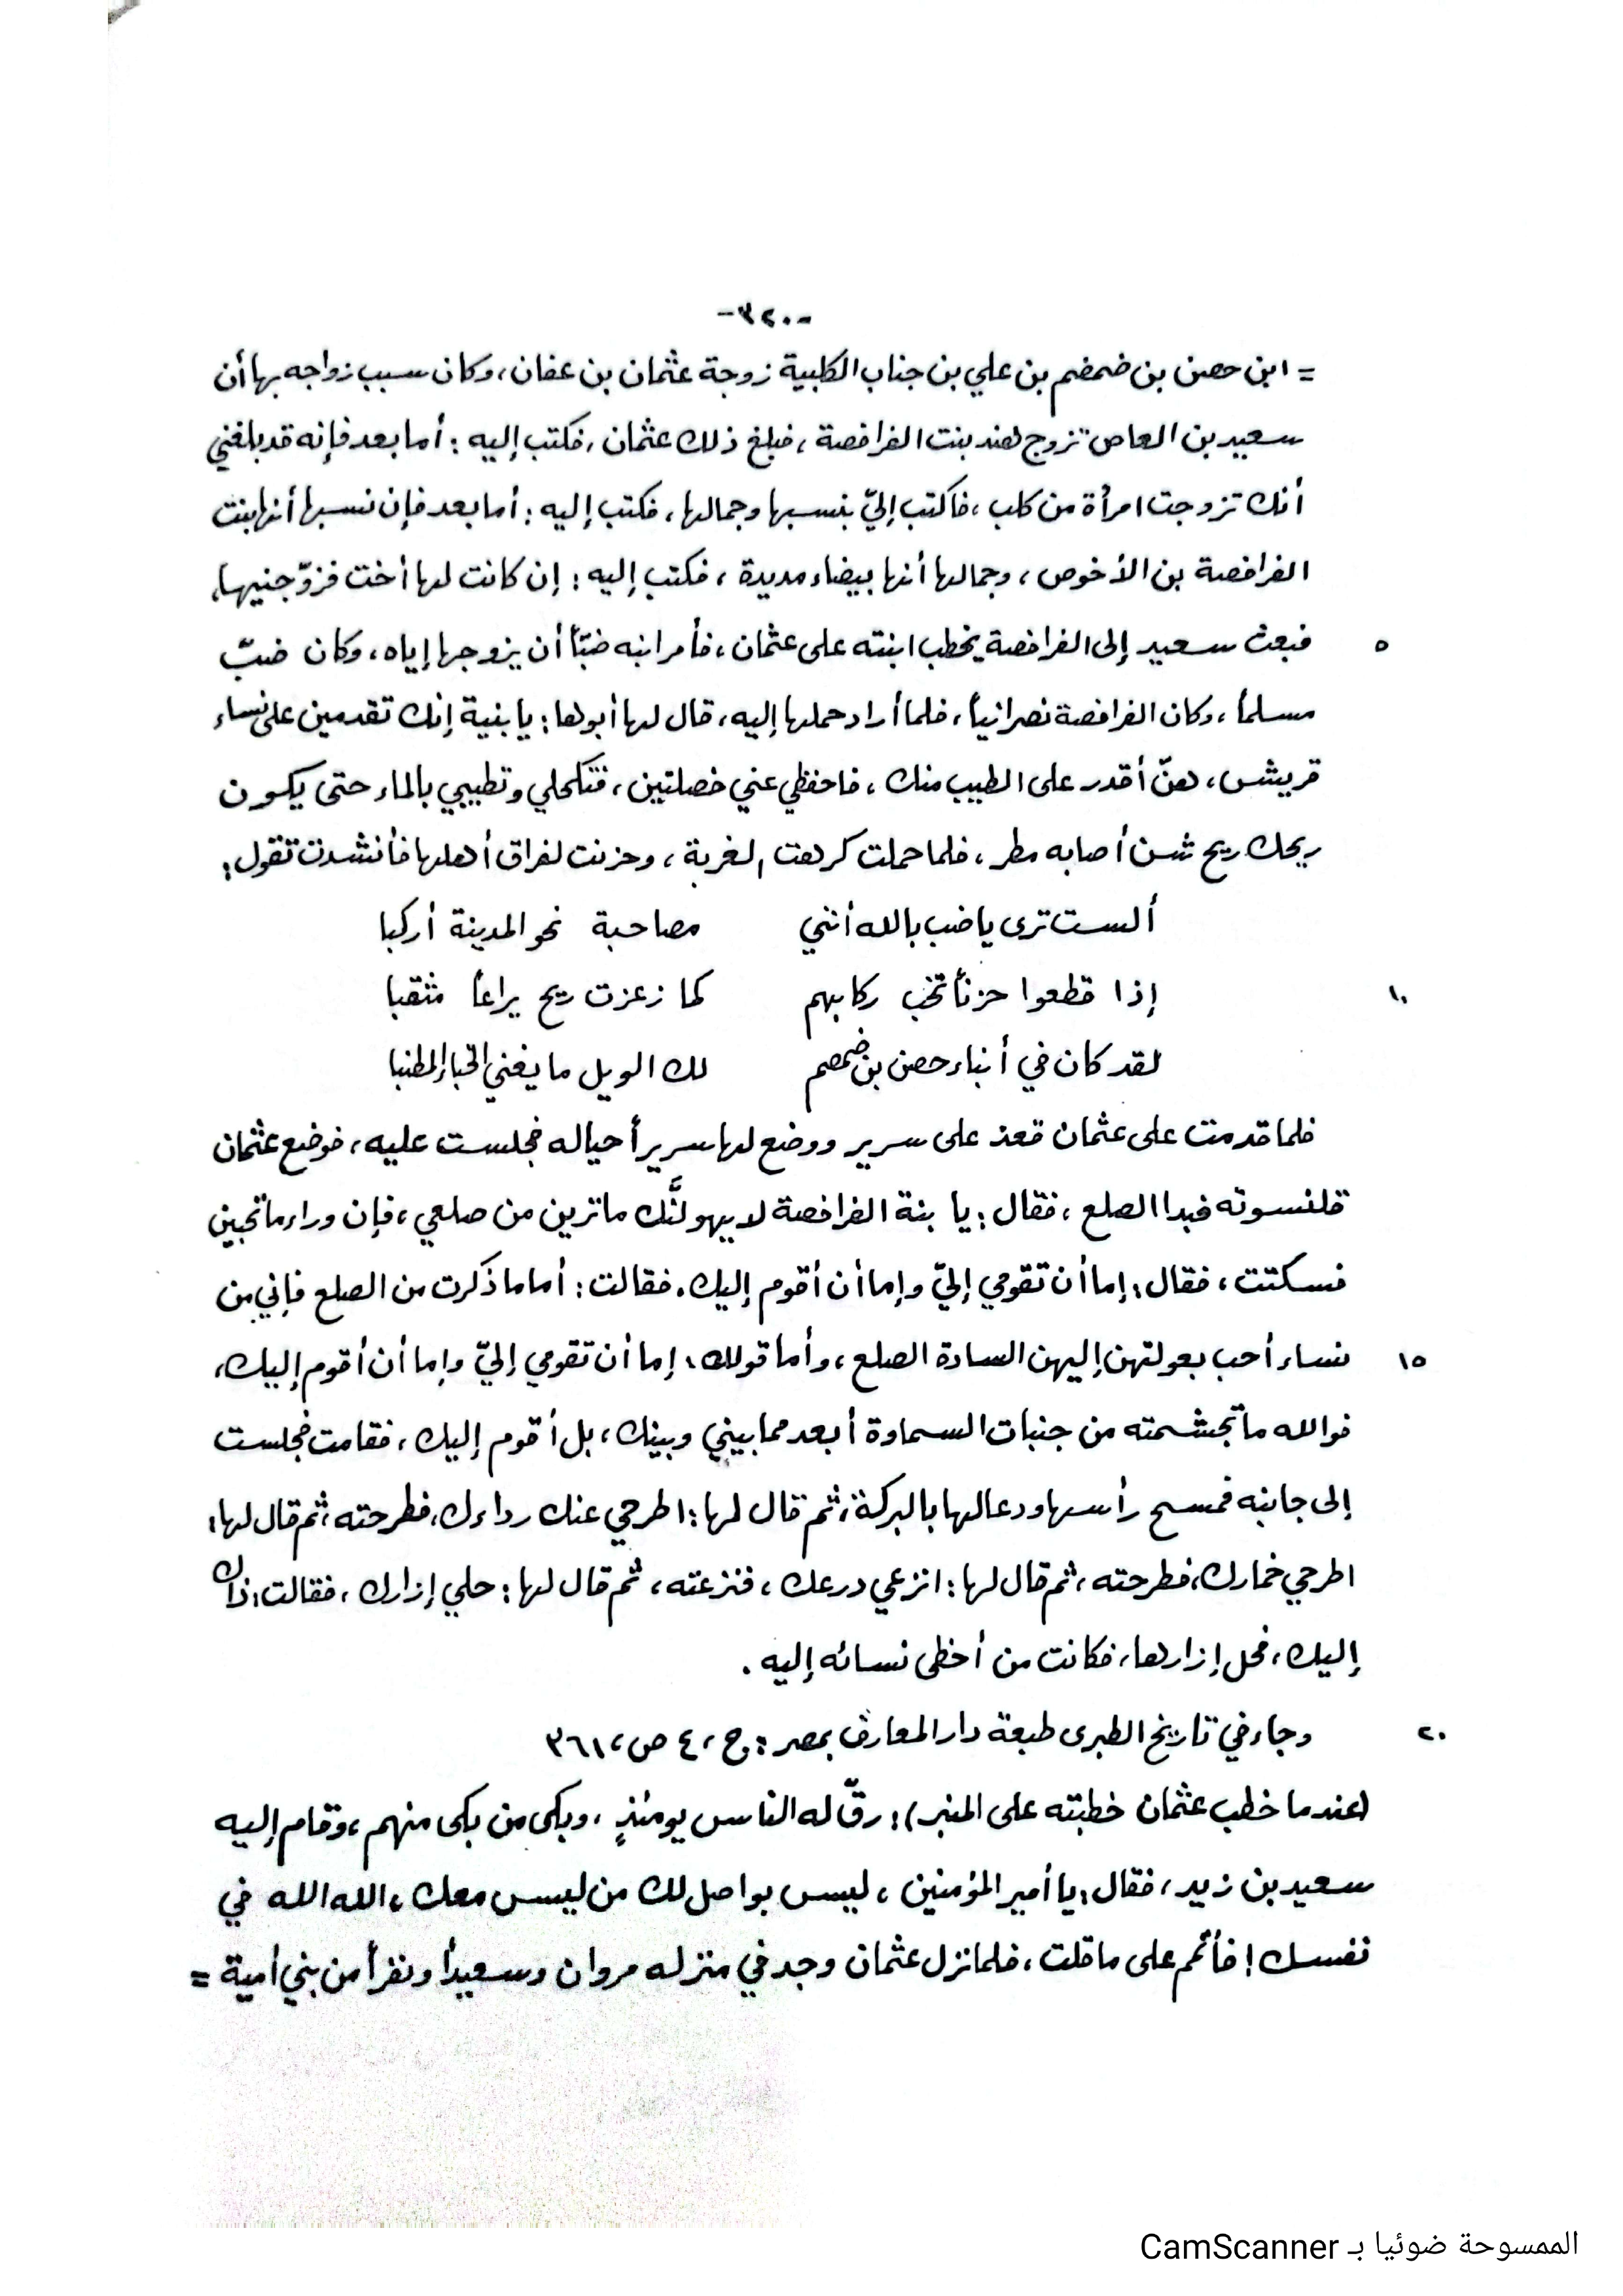 -٣٢٠-
= ابن حصن بن ضمضم بن علي بن جناب الكلبية زوجة عثمان بن عفان، وكان سبب زواجه بها أن
سعيد بن العاص تزوج هند بنت الفرافصة، فبلغ ذلك عثمان، فكتب إليه: أما بعد فإنه قد بلغني
أنك تزوجت امرأة من كلب، فاكتب إليّ بنسبها وجمالها، فكتب إليه: أما بعد فإن نسبها أنها بنت
الفرافصة بن الأخوص، وجمالها أنها بيضاء مديدة، فكتب إليه: إن كانت لها أخت فزوّجنيها،
٥ فبعث سعيد إلى الفرافصة يخطب ابنته على عثمان، فأمر ابنه ضبّاً أن يزوجها إياه، وكان ضبّ
مسلماً، وكان الفرافصة نصرانياً، فلما أراد حملها إليه، قال لها أبوها: يا بنية إنك تقدمين على نساء
قريش، هنّ أقدر على الطيب منك، فاحفظي عني خصلتين، فتكحلي وتطيبي بالماء حتى يكون
ريحك ريح شن أصابه مطر، فلما حملت كرهت الغربة، وحزنت لفراق أهلها فأنشدت تقول:
ألست ترى يا ضب بالله أنني مصاحبة نحو المدينة أركبا
١٠ إذا قطعوا حزناً تخب ركابهم كما زعزعت ريح يراعاً مثقبا
لقد كان في أبناء حصن بن ضمضم لك الويل ما يغني الخباء المطنبا
فلما قدمت على عثمان قعد على سرير ووضع لها سريراً حياله فجلست عليه، فوضع عثمان
قلنسوته فبدا الصلع، فقال: يا بنة الفرافصة لا يهولنَّك ما ترين من صلعي، فإن وراءه ما تحبين
فسكتت، فقال: إما أن تقومي إليّ وإما أن أقوم إليك. فقالت: أما ما ذكرت من الصلع فإني من
١٥ نساء أحب بعولتهن إليهن السادة الصلع، وأما قولك: إما أن تقومي إليّ وإما أن أقوم إليك،
فوالله ما تجشمته من جنبات السماوة أبعد مما بيني وبينك، بل أقوم إليك، فقامت فجلست
إلى جانبه فمسح رأسها ودعا لها بالبركة، ثم قال لها: اطرحي عنك رداءك، فطرحته، ثم قال لها:
اطرحي خمارك، فطرحته، ثم قال لها: انزعي درعك، فنزعته، ثم قال لها: حلي إزارك، فقالت: ذاك
إليك، فحل إزارها، فكانت من أحظى نسائه إليه.
٢٠ وجاء في تاريخ الطبري طبعة دار المعارف بمصر: ج، ٤ ص، ٣٦١
(عندما خطب عثمان خطبته على المنبر): رقّ له الناس يومئذٍ، وبكى من بكى منهم، وقام إليه
سعيد بن زيد، فقال: يا أمير المؤمنين، ليس بواصل لك من ليس معك، الله الله في
نفسك! فأتمم على ما قلت، فلما نزل عثمان وجد في منزله مروان وسعيداً ونفراً من بني أمية =
الممسوحة ضوئيا بـ CamScanner